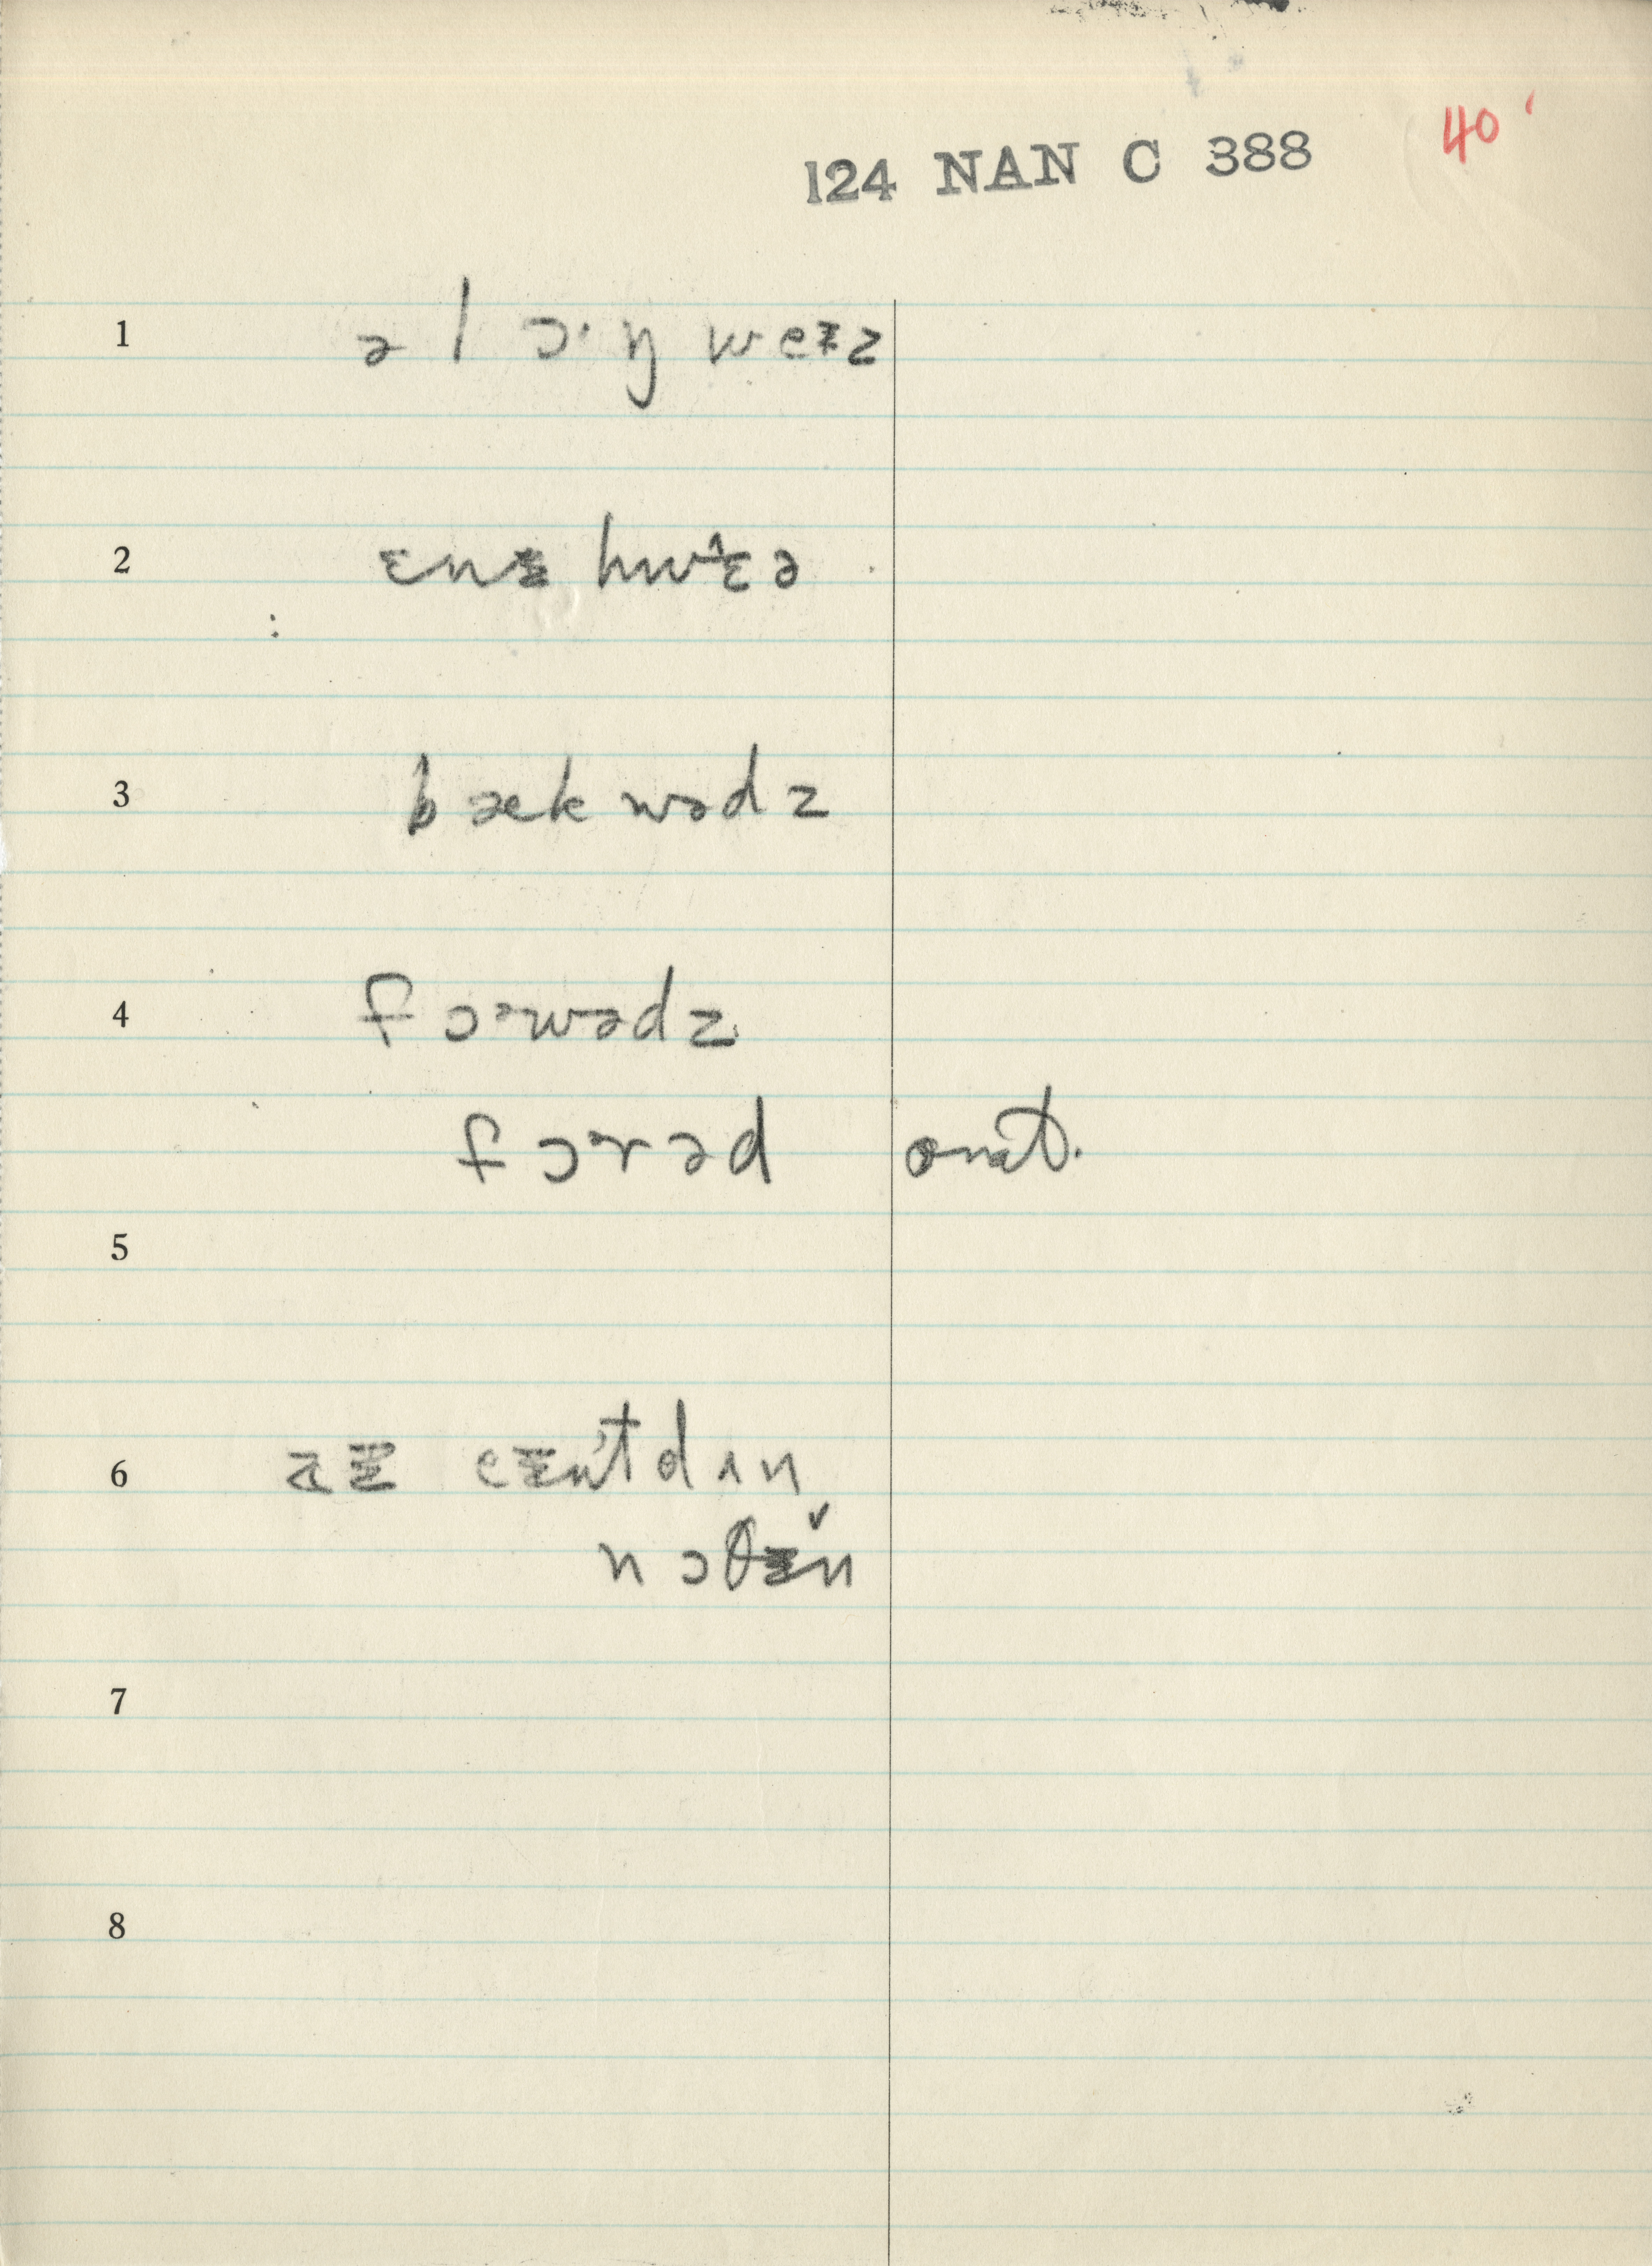 124 NAN C 388 40
1 ə l ɔ· ŋ weɪz
2 ɛnɪ hwɛ̂ə
3 bækwədz
4 fɔɚwədz
fɔɚrəd
5
6 aɪ eɪn't dʌn
nɔθɪ̌n
7
8